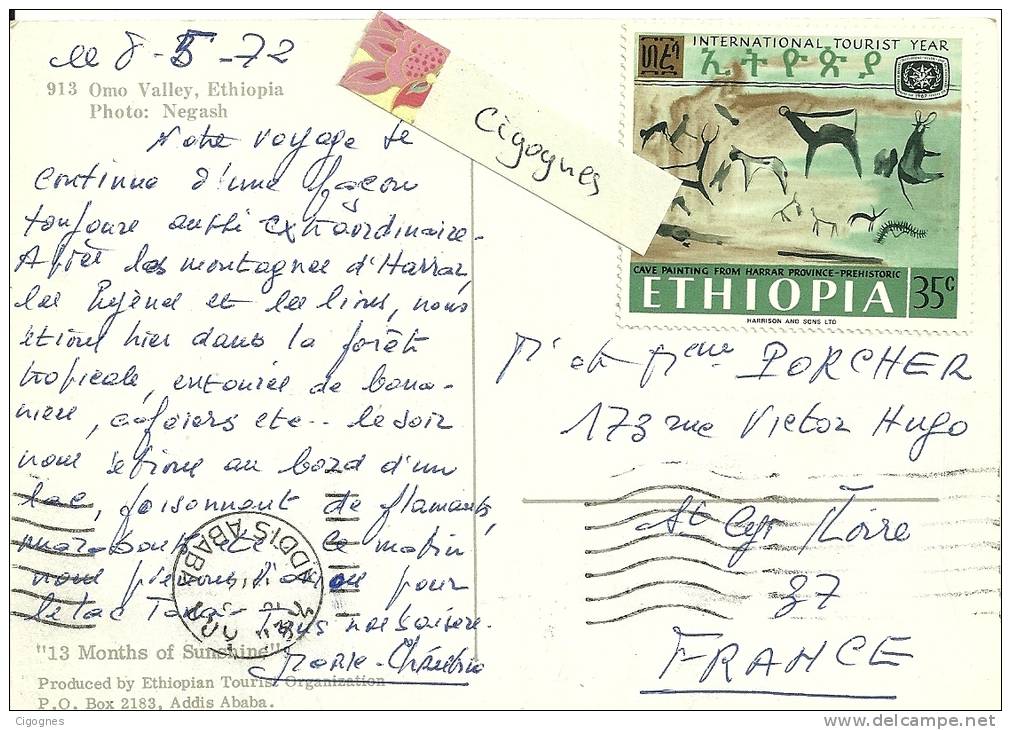 le 8-5-72
913 Omo Valley, Ethiopia
Photo: Negash
Notre voyage se
continue d'une façon
toujours aussi extraordinaire.
Après les montagnes d'Harrar,
les hyènes et les lions, nous
étions hier dans la forêt
tropicale, entourée de bana-
niers, caféiers etc.. le soir
nous étions au bord d'un
lac, foisonnant de flamants,
marabouts etc. Ce matin
nous prenons l'avion pour
le lac Tana. Tous nos baisers.
Marie-
"13 Months of Sunshine"
Produced by Ethiopian Tourist Organization
P.O. Box 2183, Addis Ababa.
Cigognes
Cigognes
INTERNATIONAL TOURIST YEAR
ኢትዮጵያ
1967
CAVE PAINTING FROM HARRAR PROVINCE-PREHISTORIC
ETHIOPIA 35c
HARRISON AND SONS LTD
ADDIS ABABA
Mr et Mme PORCHER
173 rue Victor Hugo
St Cyr s/Loire
37
FRANCE
http://www.delcampe.net